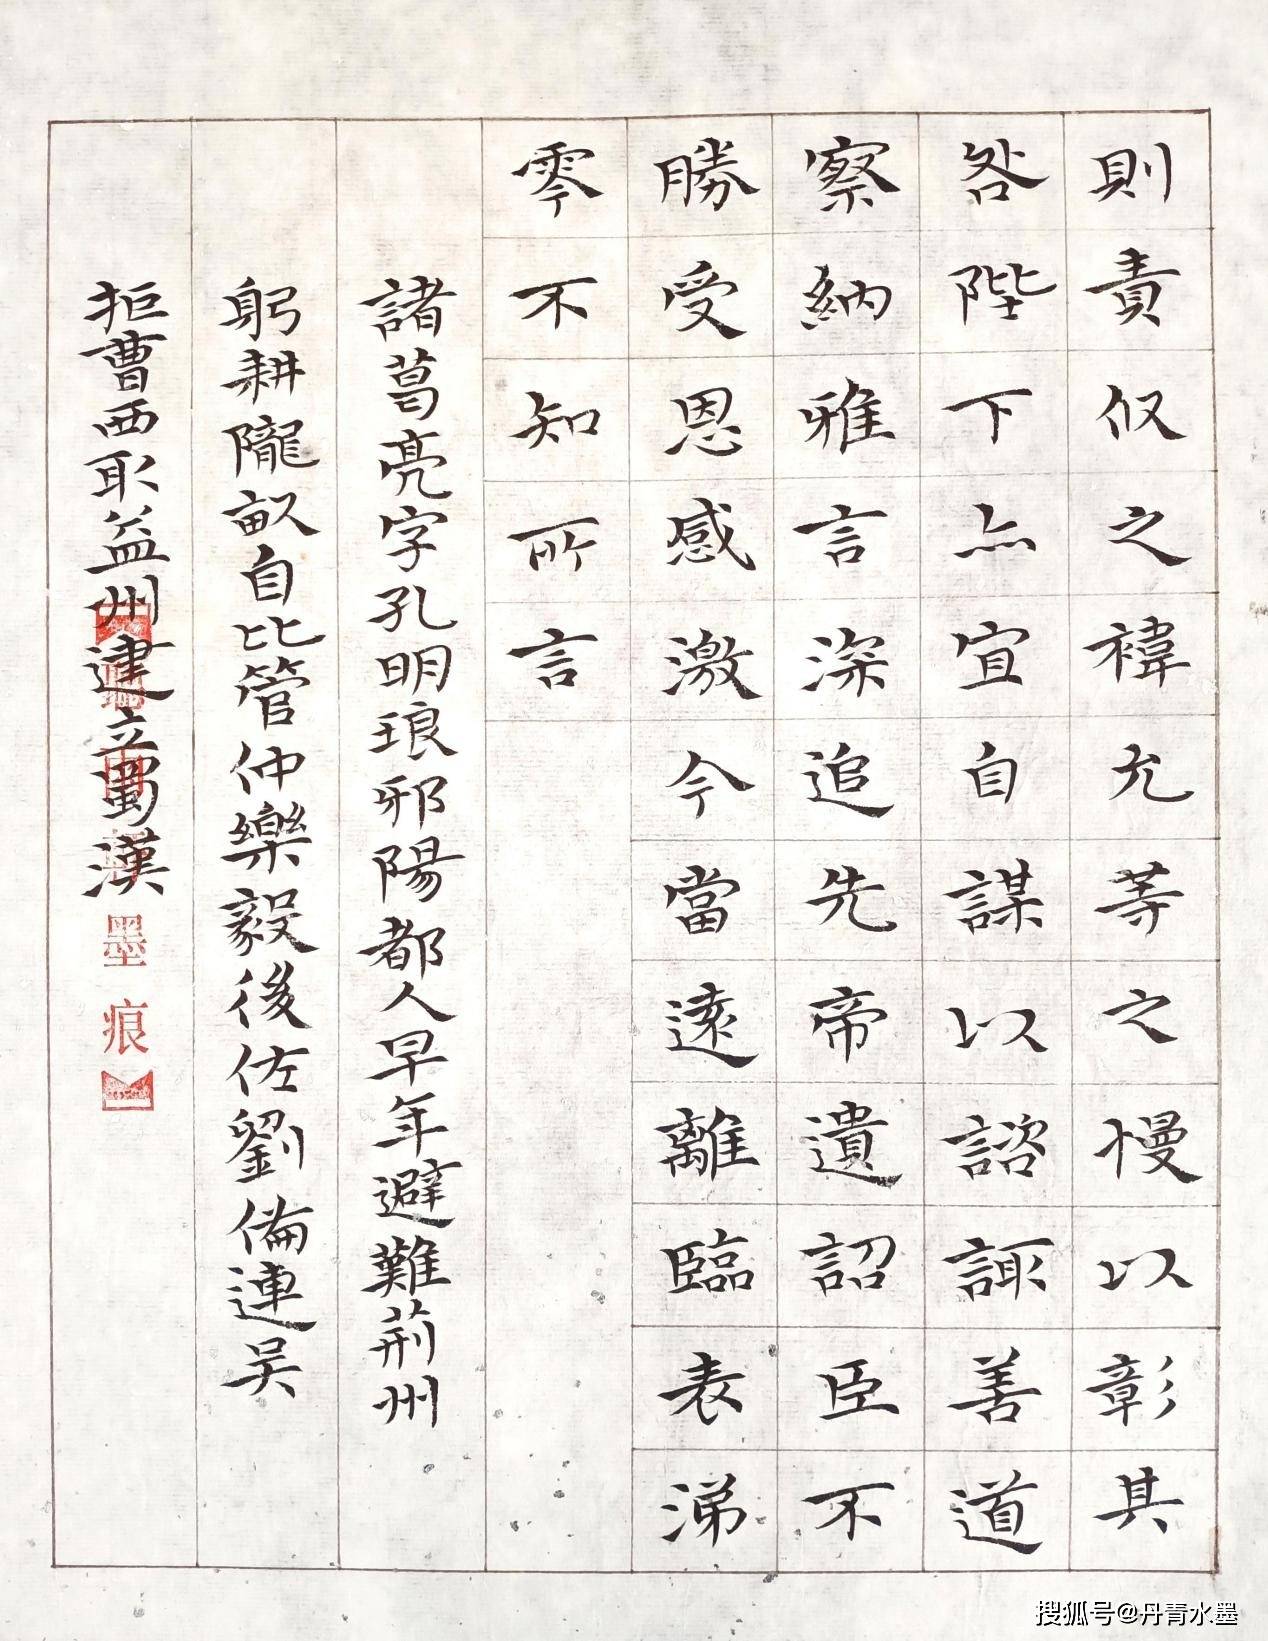 則責攸之褘允等之慢以彰其
咎陛下亦宜自謀以諮諏善道
察納雅言深追先帝遺詔臣不
勝受恩感激今當遠離臨表涕
零不知所言
諸葛亮字孔明琅邪陽都人早年避難荊州
躬耕隴畝自比管仲樂毅後佐劉備連吳
拒曹西取益州建立蜀漢
墨痕
搜狐号@丹青水墨